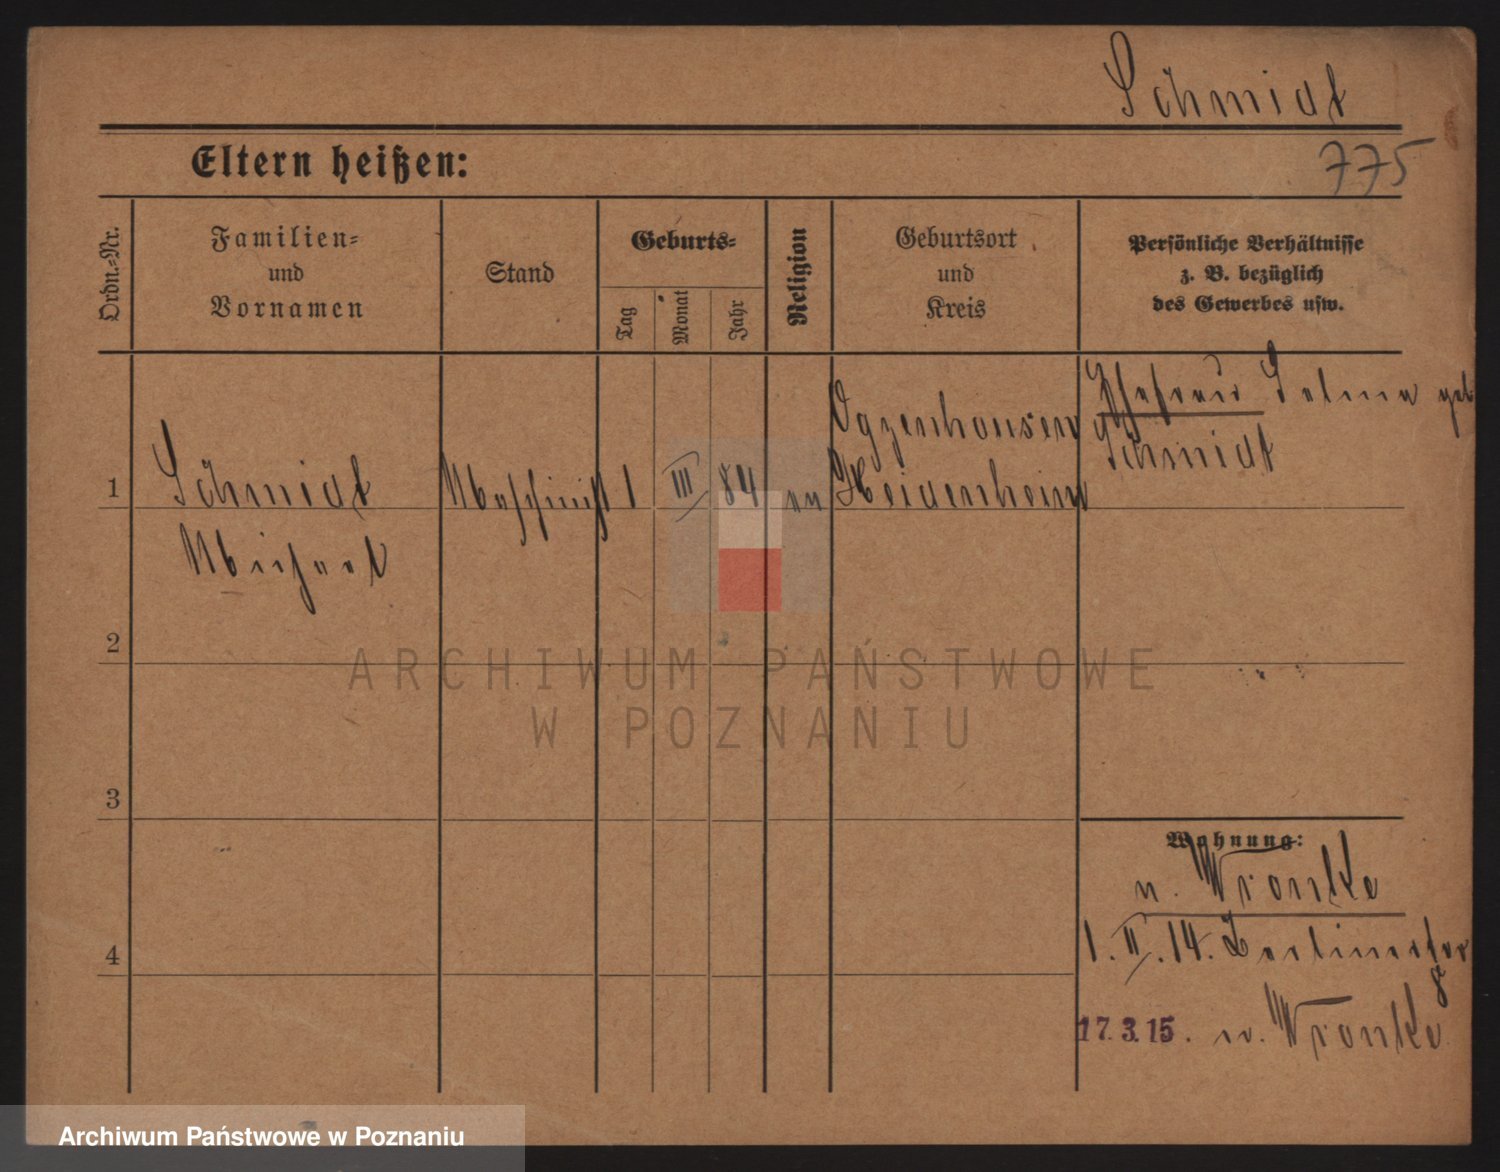 Schmidt
775
Eltern heißen:
Ordn.-Nr.
Familien-
und
Vornamen
Stand
Geburts-
Tag
Monat
Jahr
Religion
Geburtsort
und
Kreis
Persönliche Verhältnisse
z. B. bezüglich
des Gewerbes usw.
1
Schmidt
Michael
Maschinist
1
III
84
ev
Oggenhausen
Heidenheim
Ehefrau Selma geb
Schmidt
2
3
4
Wohnung:
n. Wronke
1. II. 14. Berlinerstr
8
17. 3. 15. n. Wronke
ARCHIWUM PAŃSTWOWE
W POZNANIU
Archiwum Państwowe w Poznaniu